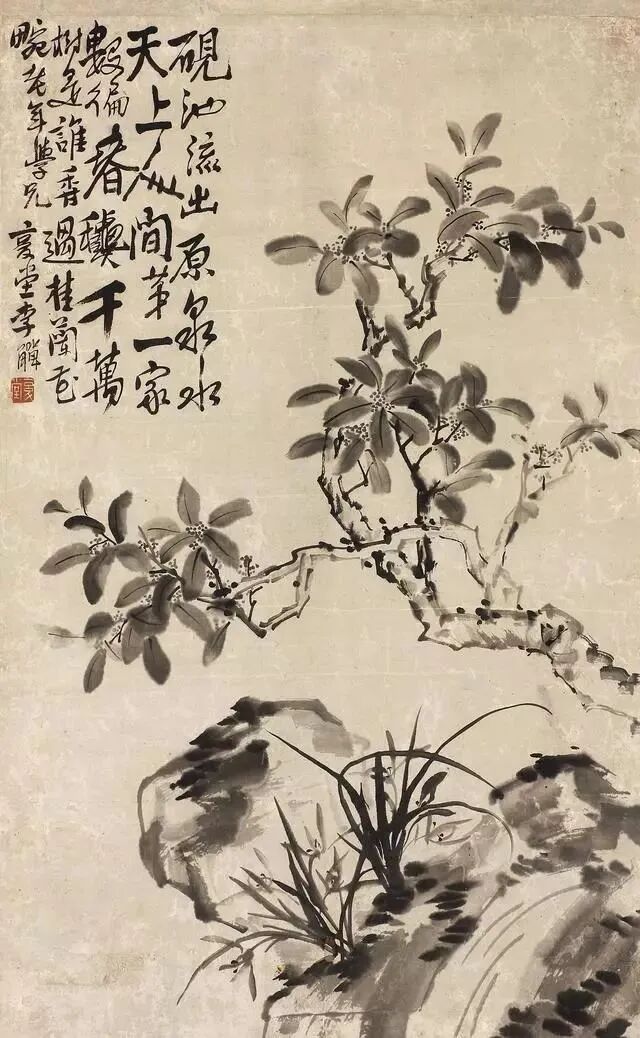 硯池流出原泉水
天上人間第一家
數徧春叢千萬
樹是誰香過桂蘭花
畹老年學兄 復堂李觶